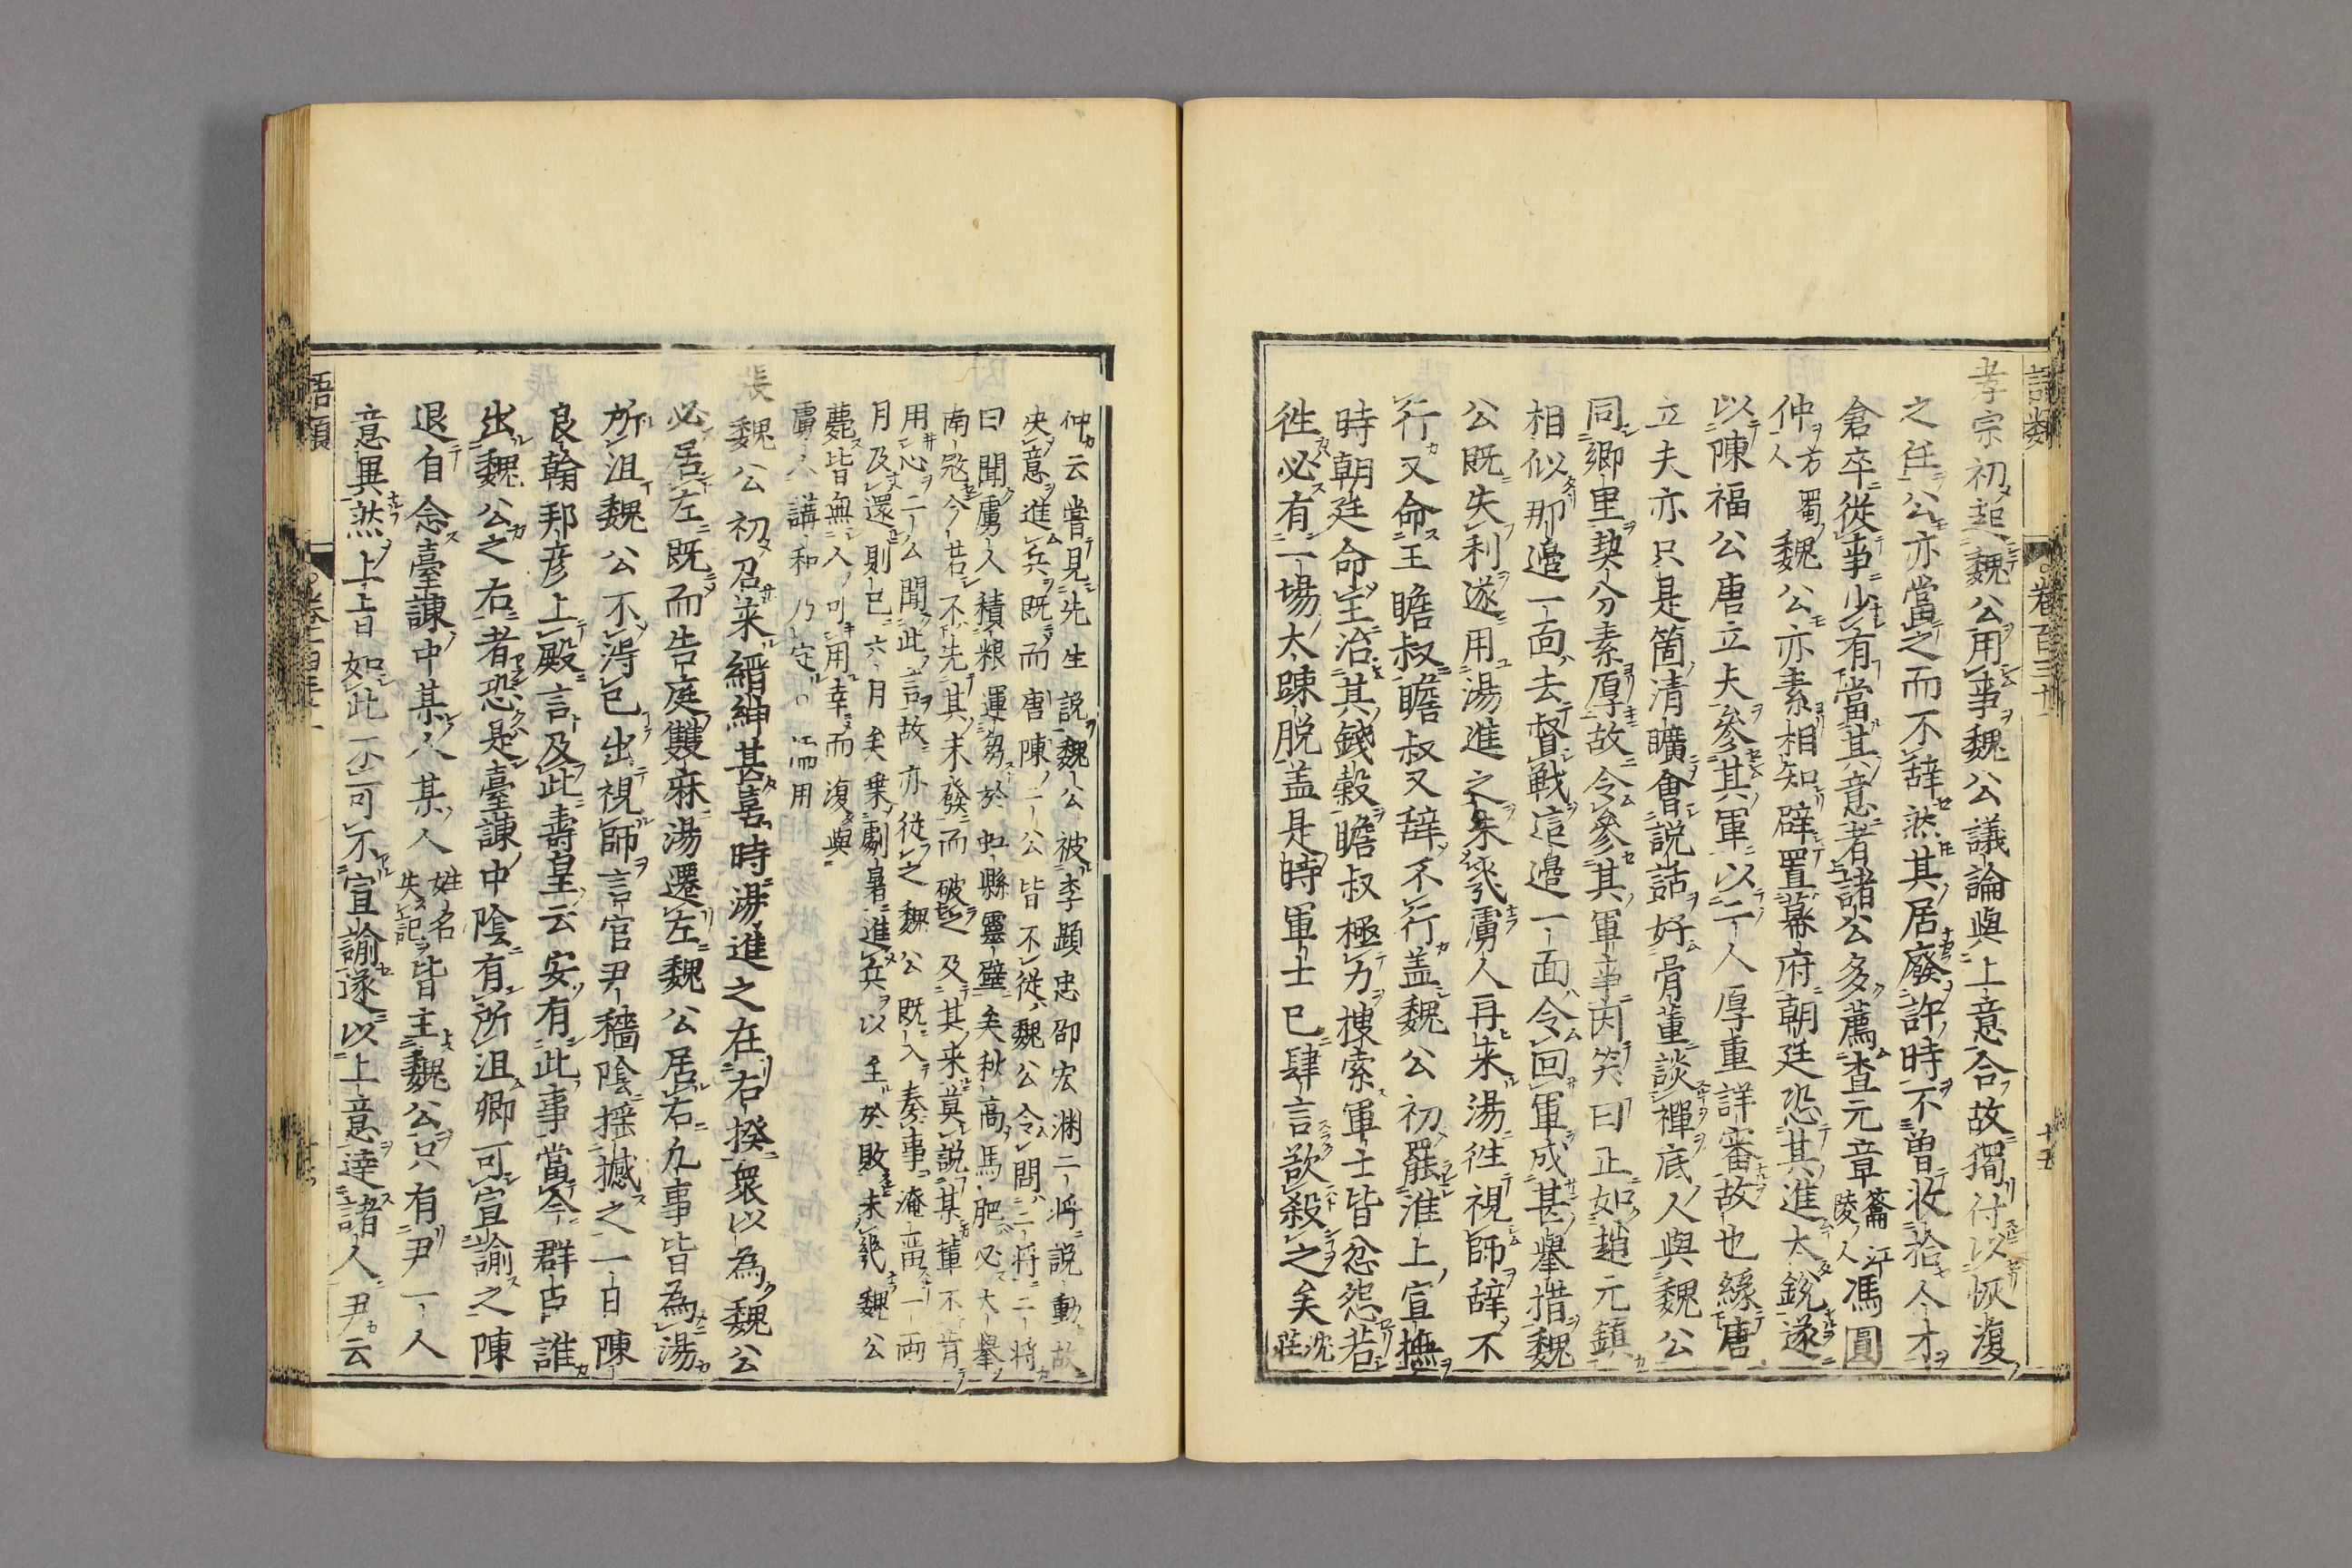 語類
卷百三十一
十五
孝宗初起魏公用事魏公議論與上意合故獨付以恢復
之任公亦當之而不辞然其居廢許時不曽收拾人才
倉卒從事少有當其意者諸公多薦查元章籥江陵人馮圓
仲方蜀人魏公亦素相知辟置幕府朝廷恐其進太銳遂
以陳福公唐立夫參其軍以二人厚重詳審故也緣唐
立夫亦只是箇清曠會説話好骨董談禪底人與魏公
同鄉里契分素厚故令參其軍事因笑曰正如趙元鎮
相似那邉一面去督戰這邉一面令回軍成甚舉措魏
公既失利遂用湯進之未幾虜人再来湯徃視師辞不
行又命王瞻叔瞻叔又辞不行盖魏公初罷淮上宣撫
時朝廷命王治其錢穀瞻叔極力摟索軍士皆忿怨若
徃必有一塲太踈脱盖是時軍士已肆言欲殺之矣沈荘
仲云嘗見先生説魏公被李顕忠邵宏渊二将説動故
决意進兵既而唐陳二公皆不從魏公令問二将二将
曰聞虜人積粮運芻於虹縣靈璧矣秋髙馬肥必大舉
南冦今若不先其未發而破之及其来莫説某軰不肯
用心二公聞此言故亦從之魏公既入奏事淹畄一兩
月及還則已六月矣乗劇暑進兵以至於敗未幾魏公
薨皆無人可用幸而復與
虜人講和乃定○㵎用
張魏公初召来縉紳甚喜時湯進之在右揆衆以為魏公
必居左既而告庭雙麻湯遷左魏公居右凢事皆為湯
所沮魏公不淂已出視師言官尹穡陰揺撼之一日陳
良翰邦彦上殿言及此壽皇云安有此事當今群臣誰
出魏公之右者恐是臺諫中陰有所沮卿可宣諭之陳
退自念臺諫中某人某人姓名失記皆主魏公只有尹一人
意異然上旨如此不可不宣諭遂以上意達諸人尹云
語類
卷百三十一